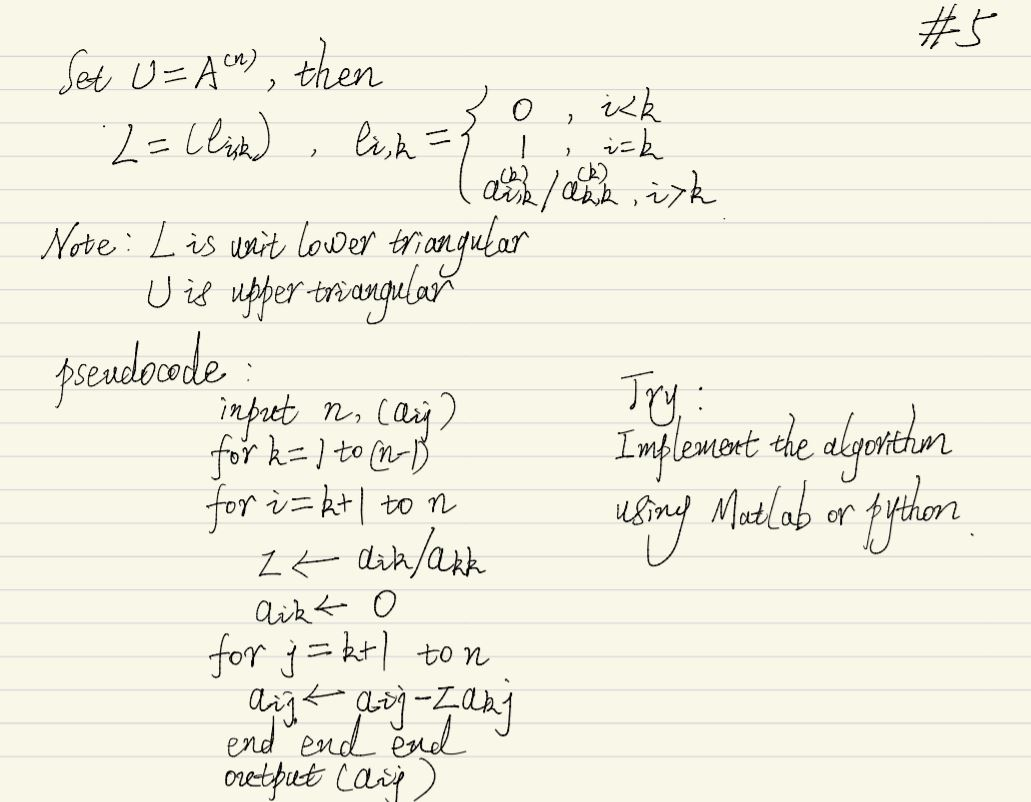 #5
Set U=A^(n), then
L=(l_i,k), l_i,k = { 0, i<k
1, i=k
a_i,k^(k)/a_k,k^(k), i>k
Note: L is unit lower triangular
U is upper triangular
pseudocode:
input n, (a_ij)
for k=1 to (n-1)
for i=k+1 to n
z ← a_ik/a_kk
a_ik ← 0
for j=k+1 to n
a_ij ← a_ij-z a_kj
end end end
output (a_ij)
Try:
Implement the algorithm
using MatLab or python.